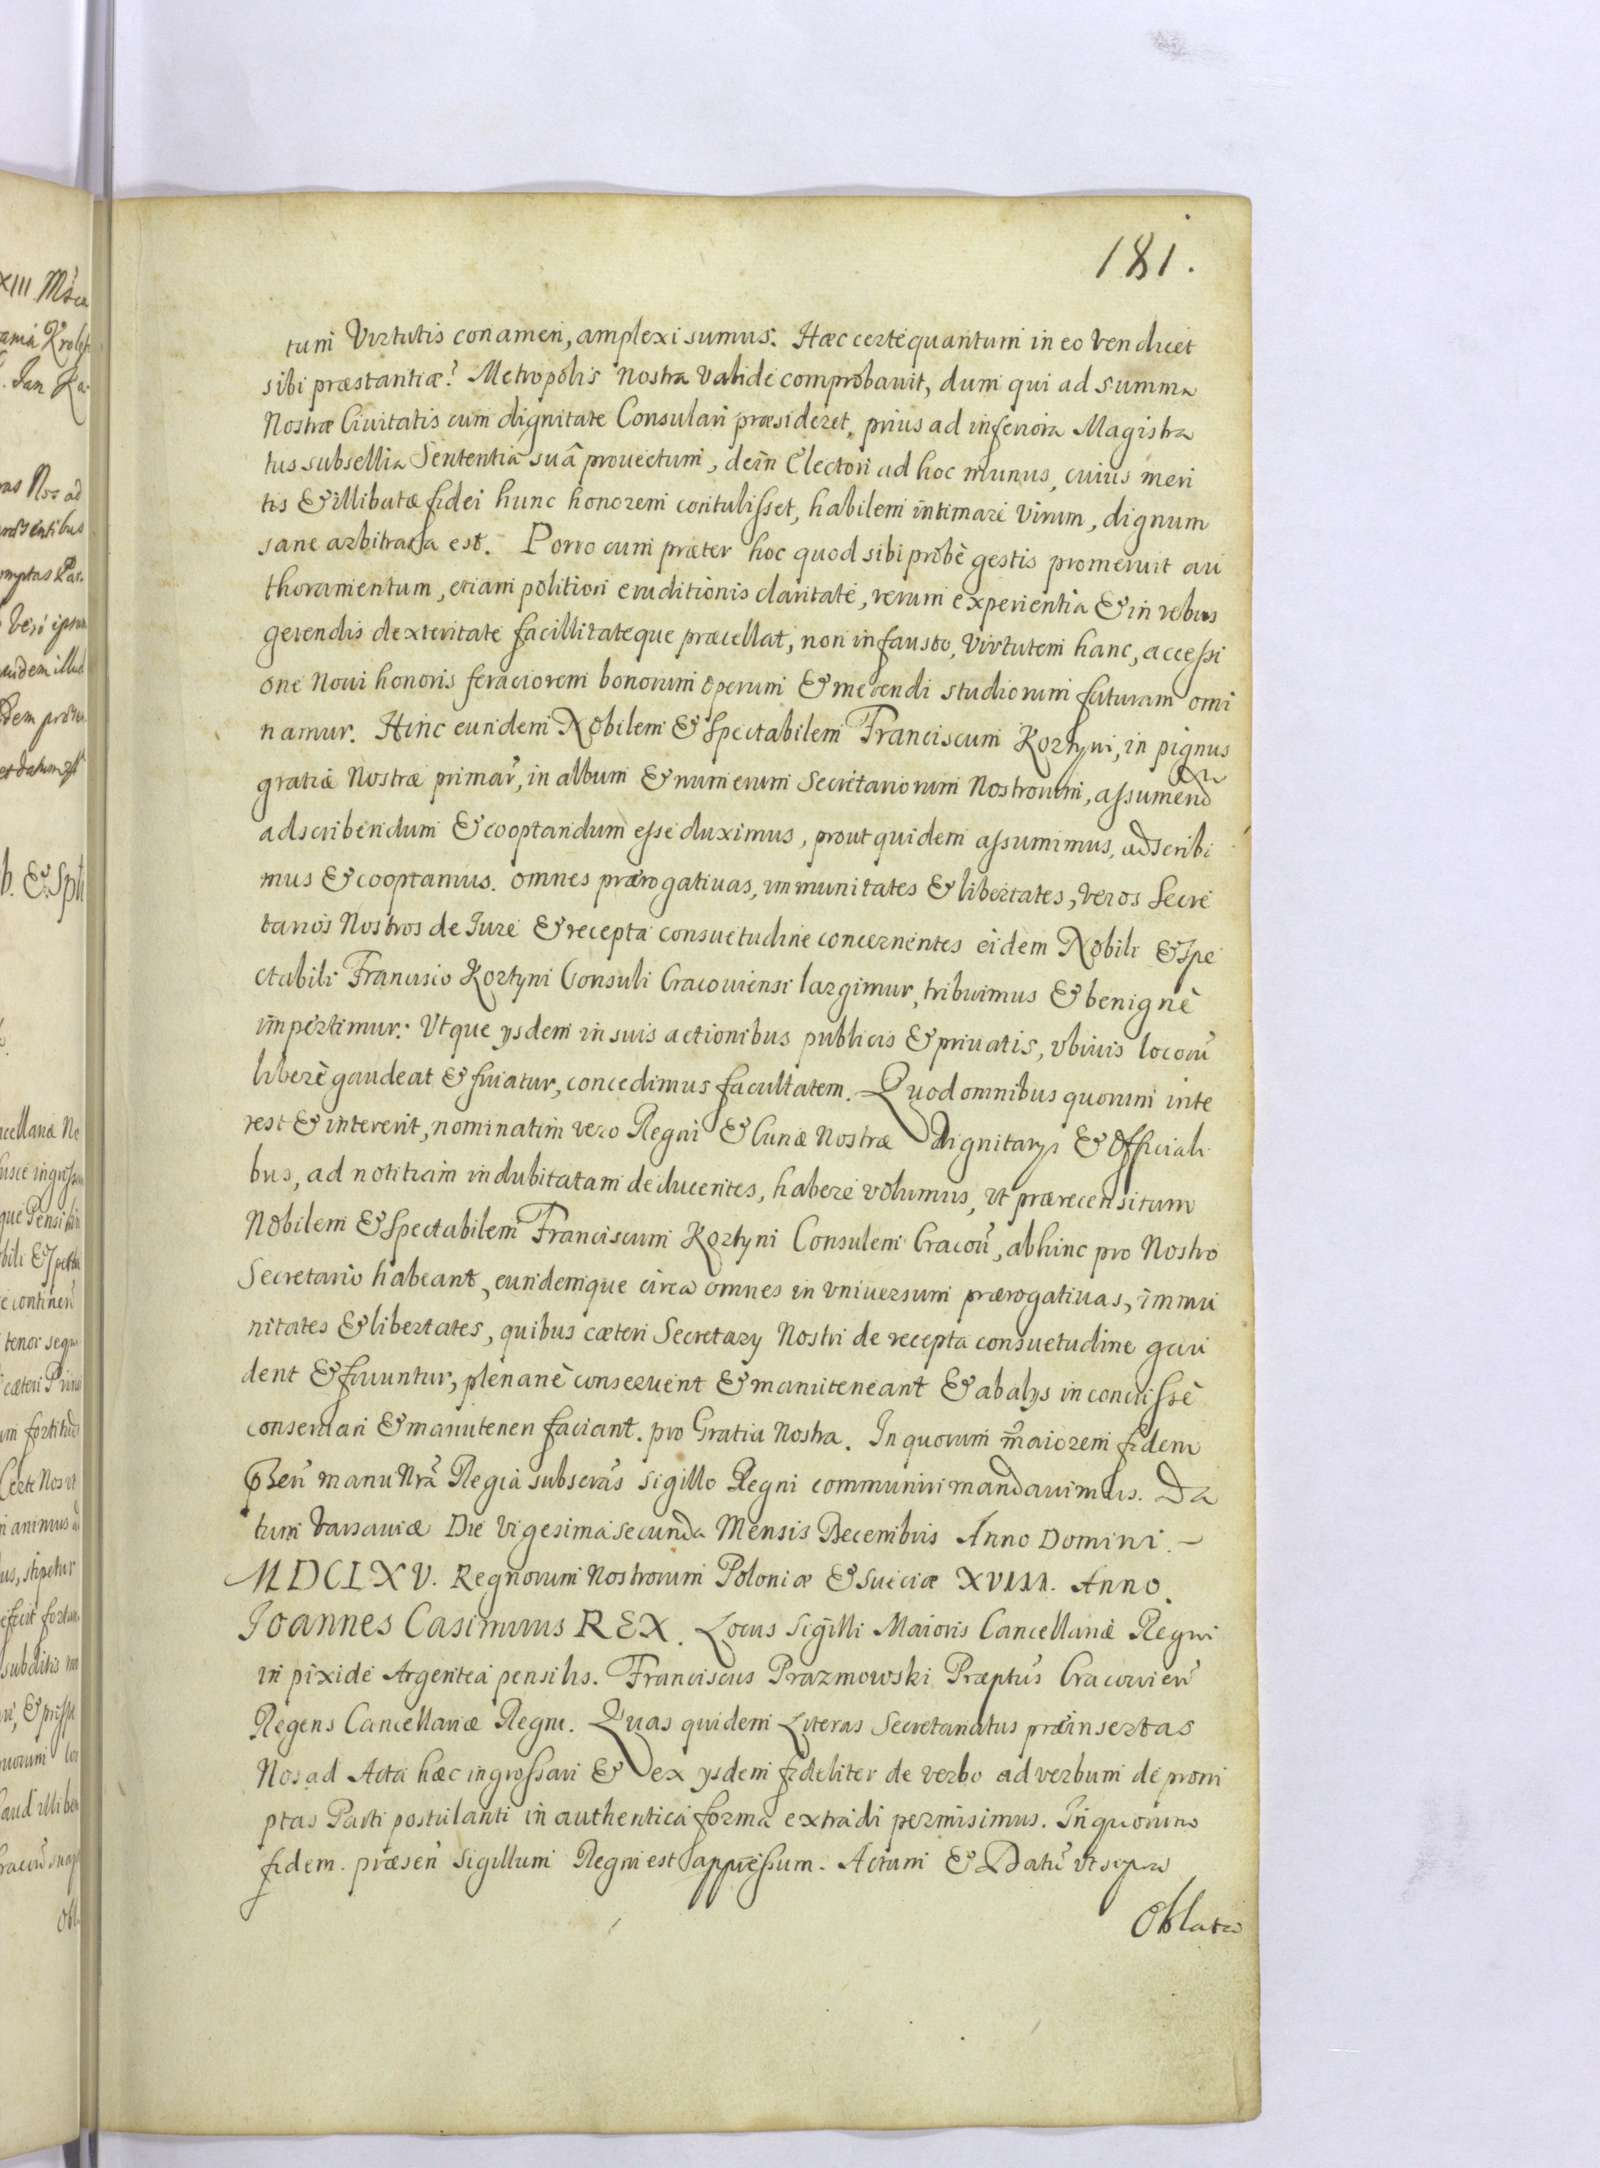 181.
tum Virtutis conamen, amplexi sumus. Hæc certe quantum in eo vendicet
sibi præstantiæ? Metropolis Nostra valide comprobavit, dum qui ad summa
Nostræ Civitatis cum dignitate Consulari præsideret, prius ad inferiora Magistra
tus subsellia Sententiâ suâ provectum, dein Electori ad hoc munus, cuius meri
tis & illibatæ fidei hunc honorem contulisset, habilem intimare Virum, dignum
sane arbitrata est. Porro cum præter hoc quod sibi probè gestis promeruit au
thoramentum, etiam politiori eruditionis claritate, rerum experientia & in rebus
gerendis dexteritate facillitateque præcellat, non infausto, Virtutem hanc, accessi
one Novi honoris feraciorem bonorum operum & merendi studiorum futuram omi
namur. Hinc eundem Nobilem & Spectabilem Franciscum Kortyni, in pignus
gratiæ Nostræ primar, in album & numerum Secretariorum Nostrorum, assumend
adscribendum & cooptandum esse duximus, prout quidem assumimus, adscribi
mus & cooptamus. omnes prærogativas, immunitates & libertates, veros Secre
tarios Nostros de Jure & recepta consuetudine concernentes eidem Nobili & Spe
ctabili Francisco Kortyni Consuli Cracoviensi largimur, tribuimus & benignè
impertimur. Utque ysdem in suis actionibus publicis & privatis, ubivis locorũ
liberè gaudeat & fruatur, concedimus facultatem. Quod omnibus quorum inte
rest & intererit, nominatim vero Regni & Curiæ Nostræ Dignitarys & Officiali
bus, ad notitiam indubitatam deducentes, habere volumus, ut prærecensitum
Nobilem & Spectabilem Franciscum Kortyni Consulem Cracoũ, abhinc pro Nostro
Secretario habeant, eundemque circa omnes in universum prærogativas, immu
nitates & libertates, quibus cæteri Secretary Nostri de recepta consuetudine gau
dent & fruuntur, plenariè conservent & manuteneant & ab alys inconcussè
conservari & manuteneri faciant. pro Gratia Nostra. In quorum maiorem fidem
Pseñ manu Nrã Regia subscrãs sigillo Regni communiri mandavimus. Da
tum Varsaviæ Die Vigesima secunda Mensis Decembris Anno Domini
MDCLXV. Regnorum Nostrorum Poloniæ & Sueciæ XVIII. Anno.
Joannes Casimirus REX. Locus Sigilli Maioris Cancellariæ Regni
in pixide Argentea pensilis. Franciscus Prazmowski Præptũs Cracovieñ
Regens Cancellariæ Regni. Quas quidem Literas Secretariatus præinsertas
Nos ad Acta hæc ingrossari & ex ysdem fideliter de verbo ad verbum depromi
ptas Parti postulanti in authentica forma extradi permisimus. In quorum
fidem præseñ Sigillum Regni est appressum. Actum & Datũ ut supra
Oblata